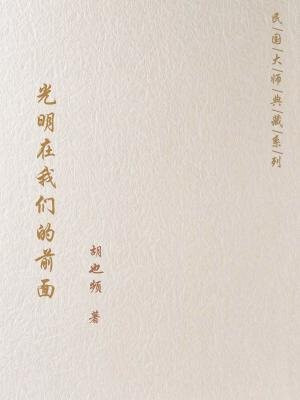 民国大师典藏系列
光明在我们的前面
胡也频 著